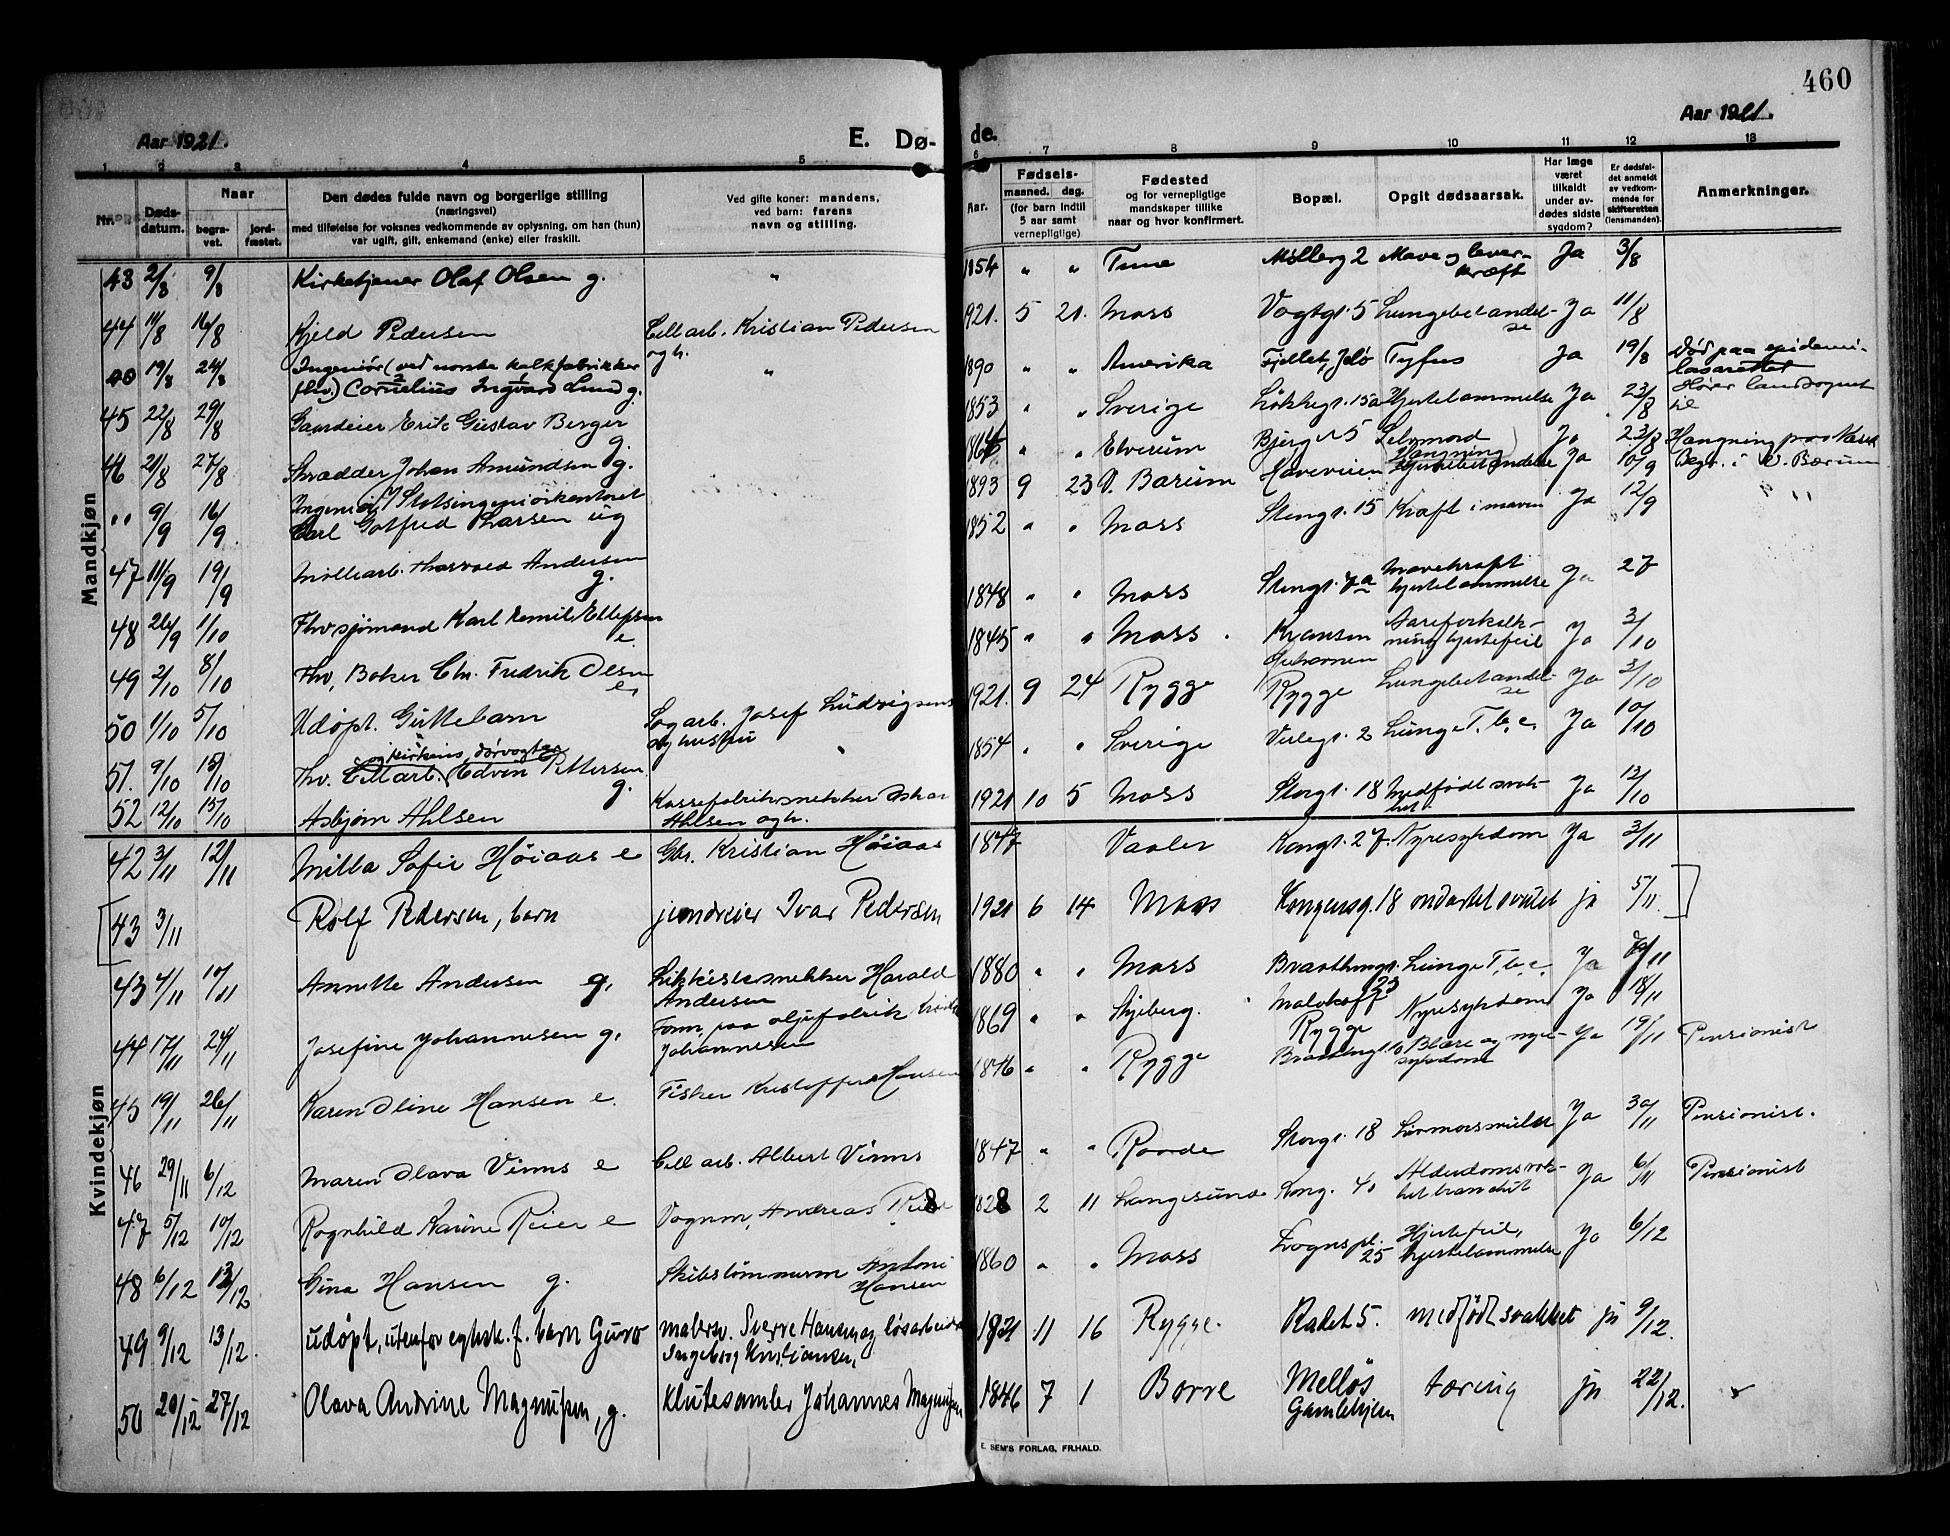 460
Aar 1921.
E. Dø-
de.
Aar 1921.
1 2 3 4 5 6 7 8 9 10 11 12 13
Nr.
Døds-
datum.
Naar
begra-
vet.
jord-
fæstet.
Den dødes fulde navn og borgerlige stilling
(næringsvei)
med tilføielse for voksnes vedkommende av oplysning, om han (hun)
var ugift, gift, enkemand (enke) eller fraskill.
Ved gifte koner: mandens,
ved barn: farens
navn og stilling.
Aar.
Fødsels-
maaned. dag.
(for barn indtil
5 aar samt
vernepligtige)
Fødested
og for vernepligtige
mandskaper tillike
naar og hvor konfirmert.
Bopæl.
Opgit dødsaarsak.
Har læge
været
tilkaldt
under av-
dødes sidste
sygdom?
Er dødsfal-
det anmeldt
av vedkom-
mende for
skifteretten
(lensmanden).
Anmerkninger.
Mandkjøn
43 2/8 9/8 Kirketjener Olaf Olsen g. " 1854 " " Tune Møllerg 2 Mave og lever-
kræft Ja 3/8
44 11/8 16/8 Kjeld Pedersen Cell arb. Kristian Pedersen
og h. 1921. 5 21. Moss Vogtgt. 5 Lungebetændel-
se Ja 11/8
19/8 24/8 Ingeniør (ved norske kalkfabrikker
fhv.) Cornelius Ingvard Lund g. " 1890 " " Amerika Fjellet, Jelø Tyfus Ja 19/8 Død paa epidemi-
lasarettet
Hører landsognet
til
45 22/8 29/8 Gaardeier Erik Gustav Berger
g. 1853 " " Sverige Løkkegt. 15a Hjertelammelse Ja 23/8
46 21/8 27/8 Skrædder Johan Amundsen g. " " Elverum 5 Selvmord
Hængning Ja 23/8
" 9/9 16/9 Statsingeniørkontoret
Carl Gotfred Larsen ug 1893 9 23 V. Bærum Haveveien Ja 10/9 Begr. i V. Bærum
47 11/9 19/9 Møllearb. Thorvald Andersen
g. 1852 " " Moss Stengt. 15 Kræft i maven Ja 12/9 " "
48 26/9 1/10 Fhv sjømand Karl Emil Ellefsen
e. 1848 " " Moss Stengt. 7a Mavekræft
hjertelammelse Ja 27
49 2/10 8/10 Fhv. Baker Chr. Fredrik Olsen
e. 1845 " " Moss Kransen Aareforkalk-
ning hjertefeil Ja 3/10
50 1/10 5/10 Udøpt. Guttebarn Sagarb. Josef Ludvigsen
og hustru 1921. 9 24 Rygge
Rygge Lungebetændel-
se Ja 3/10
51. 9/10 15/10 og kirkens dørvogter
Fhv. Cellarb. Edvin Pettersen
g. " 1854 " " Sverige Verlegt. 2 Lunge T.b.c. Ja 10/10
52 12/10 15/10 Asbjørn Ahlsen Kassefabriksnekker Oskar
Ahlsen og h. 1921 10 5 Moss Storgt. 18 Medfødt svak-
het. Ja 12/10
Kvindekjøn
42 3/11 12/11 Milla Sofie Høiaas e Gbr. Kristian Høiaas 1847 Vaaler Kongt. 27. Nyresykdom Ja 3/11
43 3/11 Rolf Pedersen, barn jerndreier Ivar Pedersen 1921 6 14 Moss Kongensg. 18 ondartet svulst ja 5/11
43 4/11 10/11 Annette Andersen g. Likkistesnekker Harald
Andersen 1880 " " Moss Braathengt.
23 Lunge T.b.c. Ja
44 17/11 24/11 Josefine Johannesen g. Form. paa oljefabrik
Johannesen 1869 " " Skjeberg. Malakoff
Rygge Nyresykdom Ja 18/11
45 19/11 26/11 Karen Oline Hansen e. Fisker Kristoffer Hansen 1846 " " Rygge Blære og nyre-
sykdom Ja 19/11 Pensionist
46 29/11 6/12 Maren Olava Vinns e Cell arb. Albert Vinns 1847 " " Raade Storgt. 18 Ja 30/11 Pensionist.
47 5/12 10/12 Ragnhild Karine Reier e Vognm. Andreas 1828 2 11 Langesund Kong. 40 Alderdomssvak-
het brandsot Ja 6/11 Pensionist
48 6/12 13/12 Gina Hansen g. Skibstømmerm Antoni
Hansen 1860 " " Moss Sognspl.
25 Hjertefeil,
hjertelammelse Ja 6/12
49 9/12 13/12. udøpt, utenfor egtsk. f. barn Guro malersv. Sverre Hansen og løsarbeider
Ingeborg Kristiansen. 1921 11 16 Rygge. Rådet 5. medfødt svakhet ja 9/12.
50 20/12 27/12 Olava Andrine Magnussen, g. Klutesamler Johannes Magnussen 1846 7 1 Borre Melløs
Gamlehjem tæring ja 22/12.
E. SEM'S FORLAG, FR.HALD.